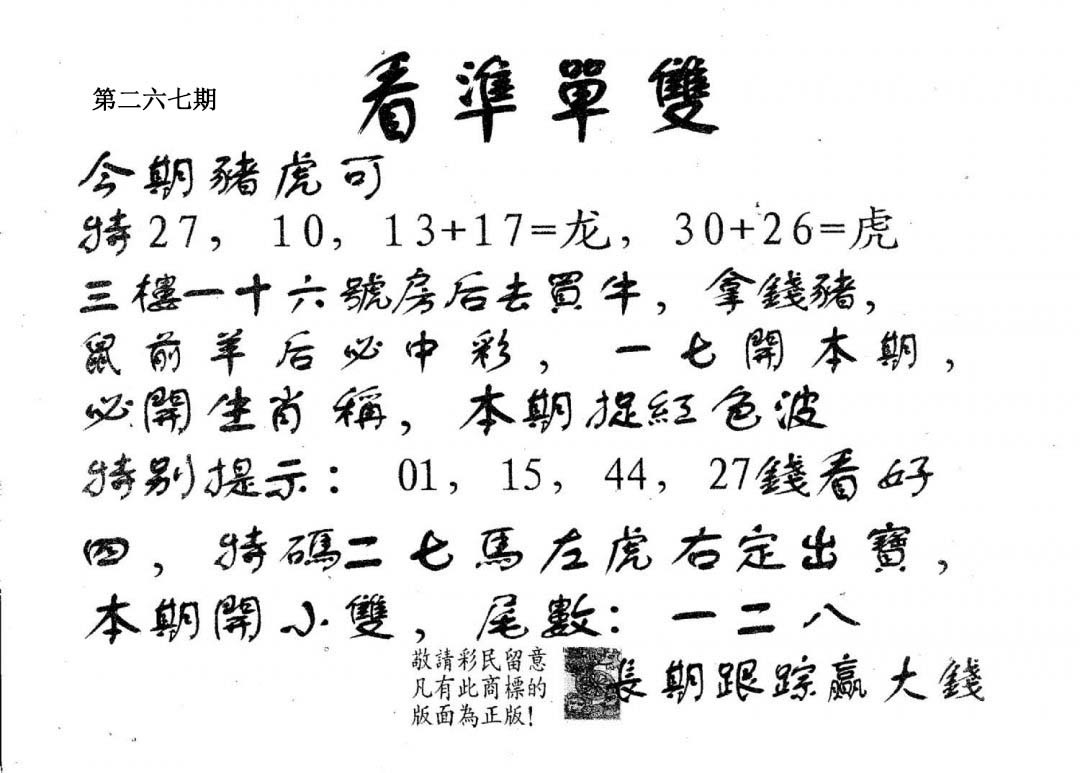 第二六七期
看準單雙
今期豬虎可
特27，10，13+17=龙，30+26=虎
三樓一十六號房后去買牛，拿錢豬，
鼠前羊后必中彩，一七開本期，
必開生肖稱，本期捉紅色波
特别提示：01，15，44，27錢看好
四，特碼二七馬左虎右定出寶，
本期開小雙，尾數：一二八
敬請彩民留意
凡有此商標的
版面為正版！
長期跟踪贏大錢